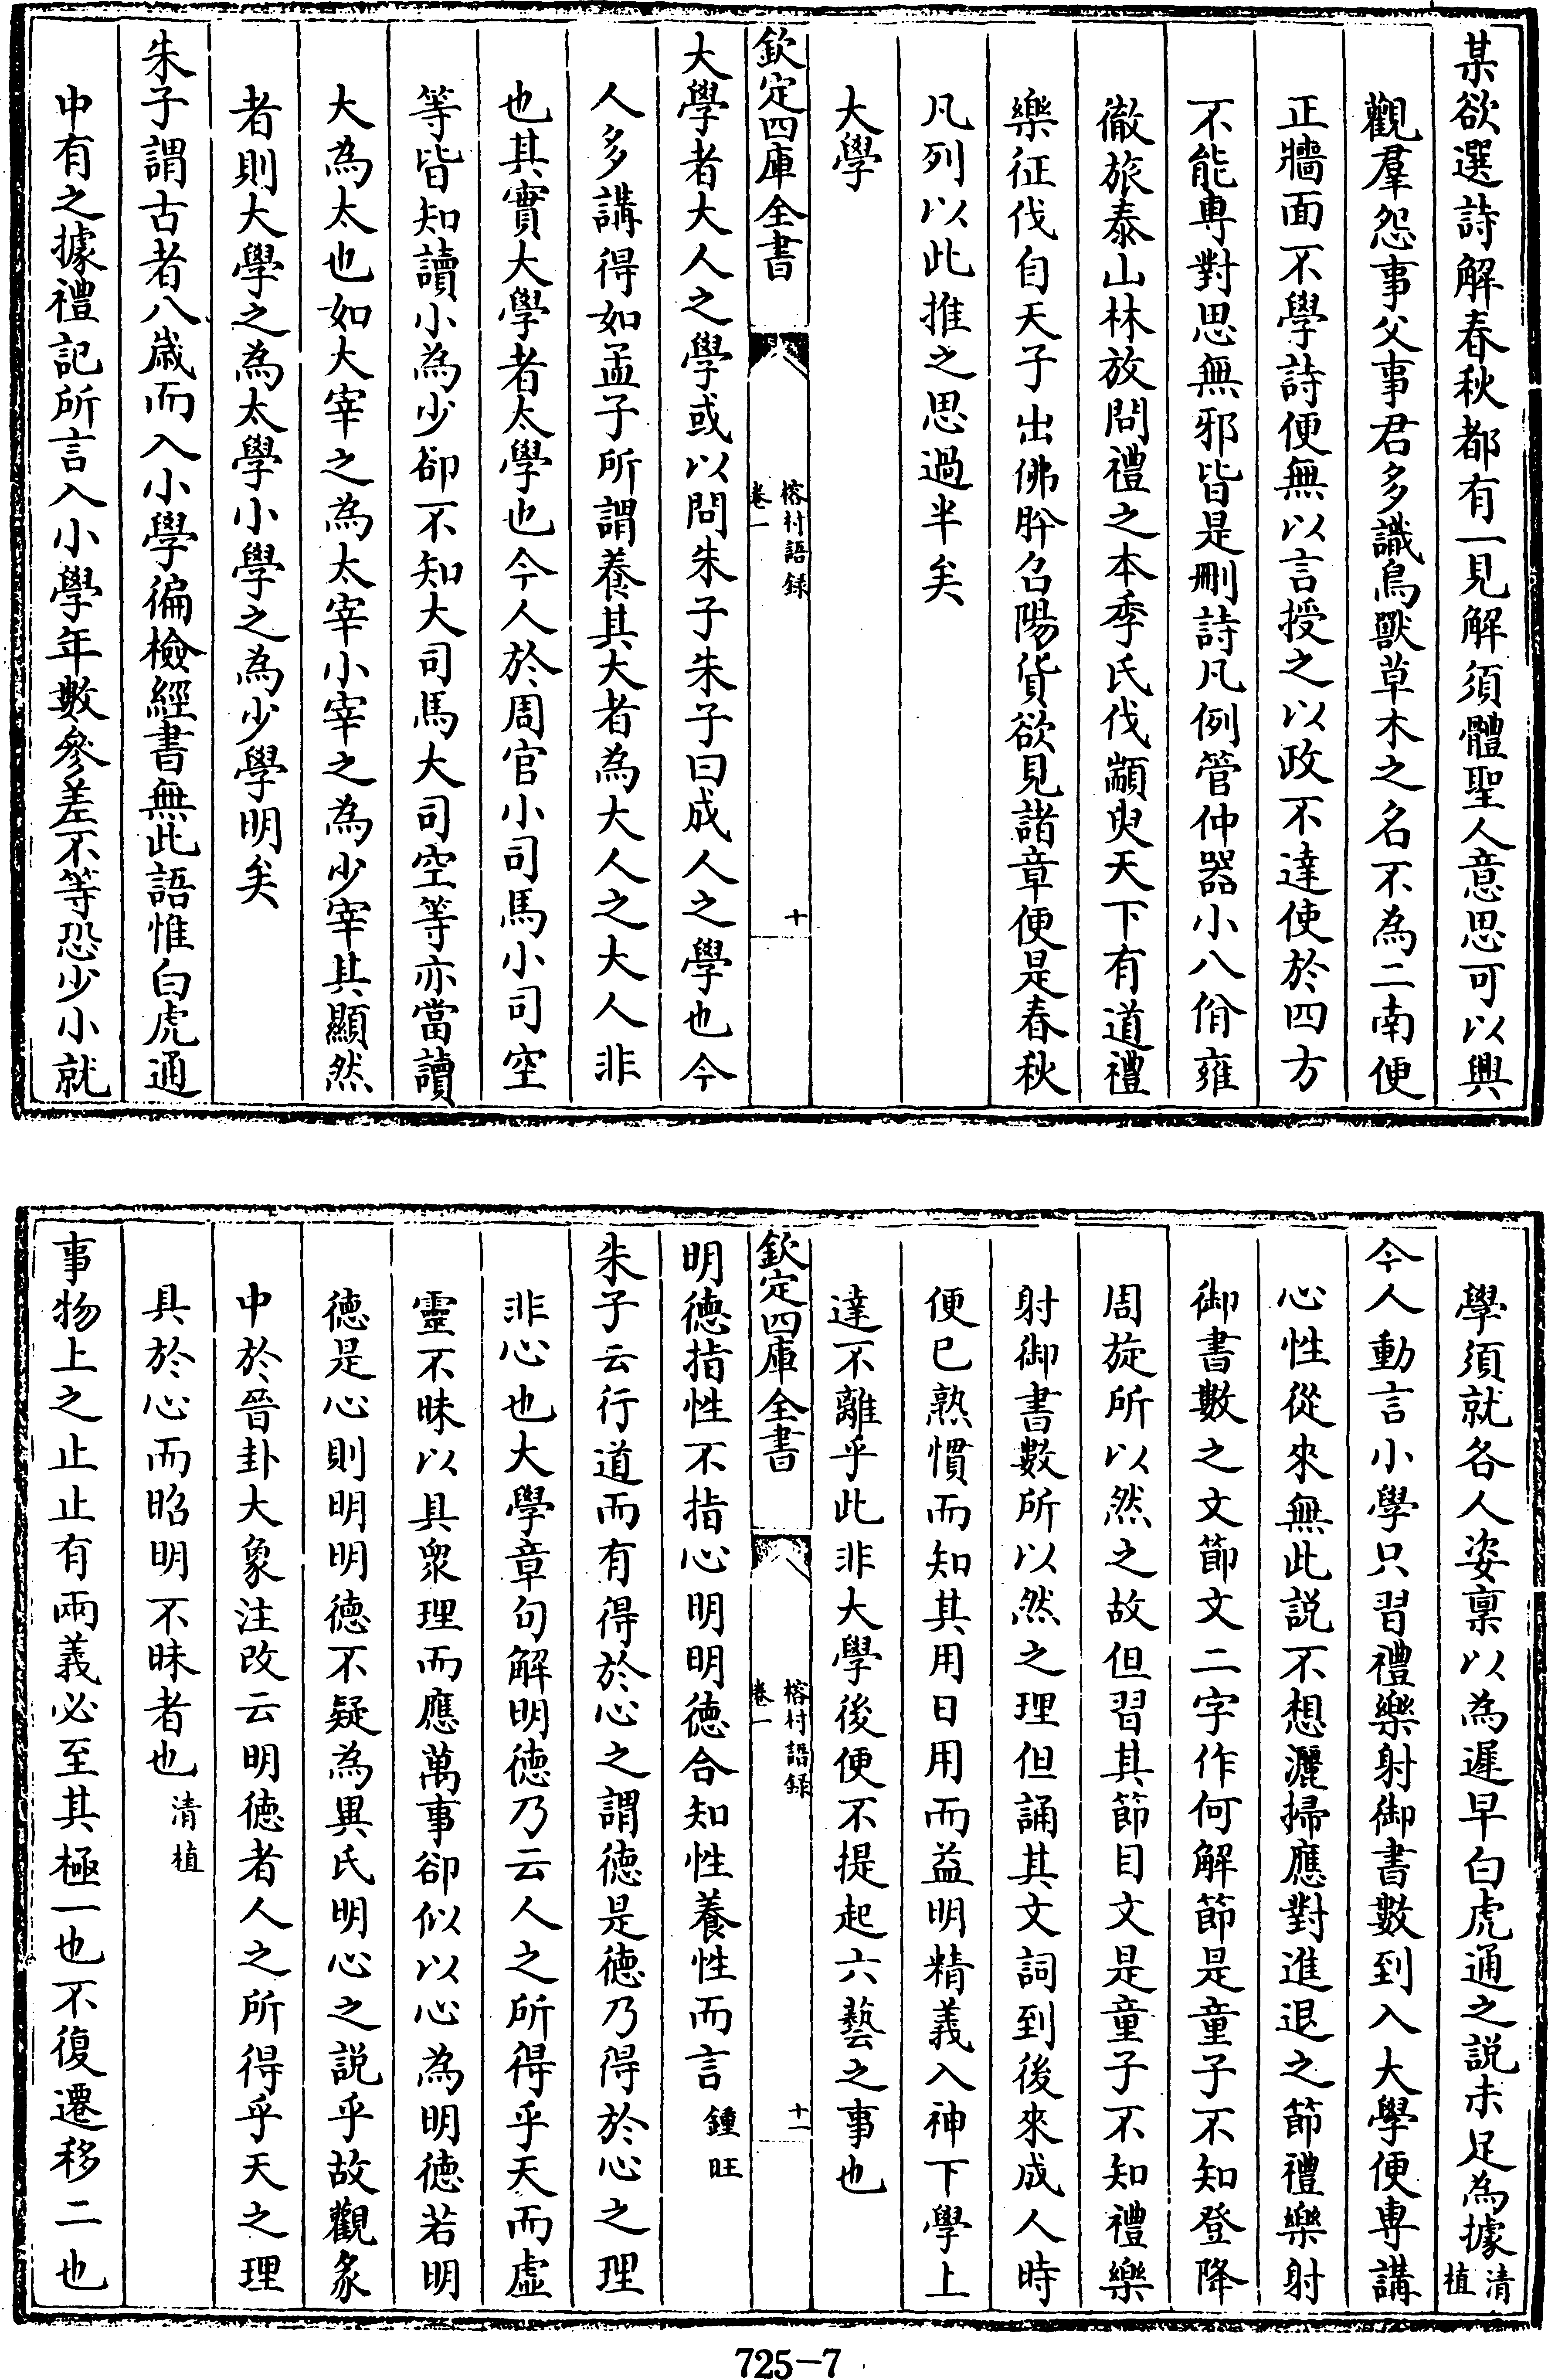 某欲選詩解春秋都有一見解須體聖人意思可以興
觀羣怨事父事君多識鳥獸草木之名不為二南便
正牆面不學詩便無以言授之以政不達使於四方
不能專對思無邪皆是刪詩凡例管仲器小八佾雍
徹旅泰山林放問禮之本季氏伐顓臾天下有道禮
樂征伐自天子出佛肸召陽貨欲見諸章便是春秋
凡列以此推之思過半矣
大學
欽定四庫全書
榕村語録
卷一
十
大學者大人之學或以問朱子朱子曰成人之學也今
人多講得如孟子所謂養其大者為大人之大人非
也其實大學者太學也今人於周官小司馬小司空
等皆知讀小為少卻不知大司馬大司空等亦當讀
大為太也如大宰之為太宰小宰之為少宰其顯然
者則大學之為太學小學之為少學明矣
朱子謂古者八歲而入小學徧檢經書無此語惟白虎通
中有之據禮記所言入小學年數參差不等恐少小就
學須就各人姿稟以為遲早白虎通之説未足為據清植
今人動言小學只習禮樂射御書數到入大學便專講
心性從來無此説不想灑掃應對進退之節禮樂射
御書數之文節文二字作何解節是童子不知登降
周旋所以然之故但習其節目文是童子不知禮樂
射御書數所以然之理但誦其文詞到後來成人時
便已熟慣而知其用日用而益明精義入神下學上
達不離乎此非大學後便不提起六藝之事也
欽定四庫全書
榕村語録
卷一
十一
明德指性不指心明明德合知性養性而言鍾旺
朱子云行道而有得於心之謂德是德乃得於心之理
非心也大學章句解明德乃云人之所得乎天而虛
靈不昧以具眾理而應萬事卻似以心為明德若明
德是心則明明德不疑為異氏明心之説乎故觀彖
中於晉卦大象注改云明德者人之所得乎天之理
具於心而昭明不昧者也清植
事物上之止止有兩義必至其極一也不復遷移二也
725-7